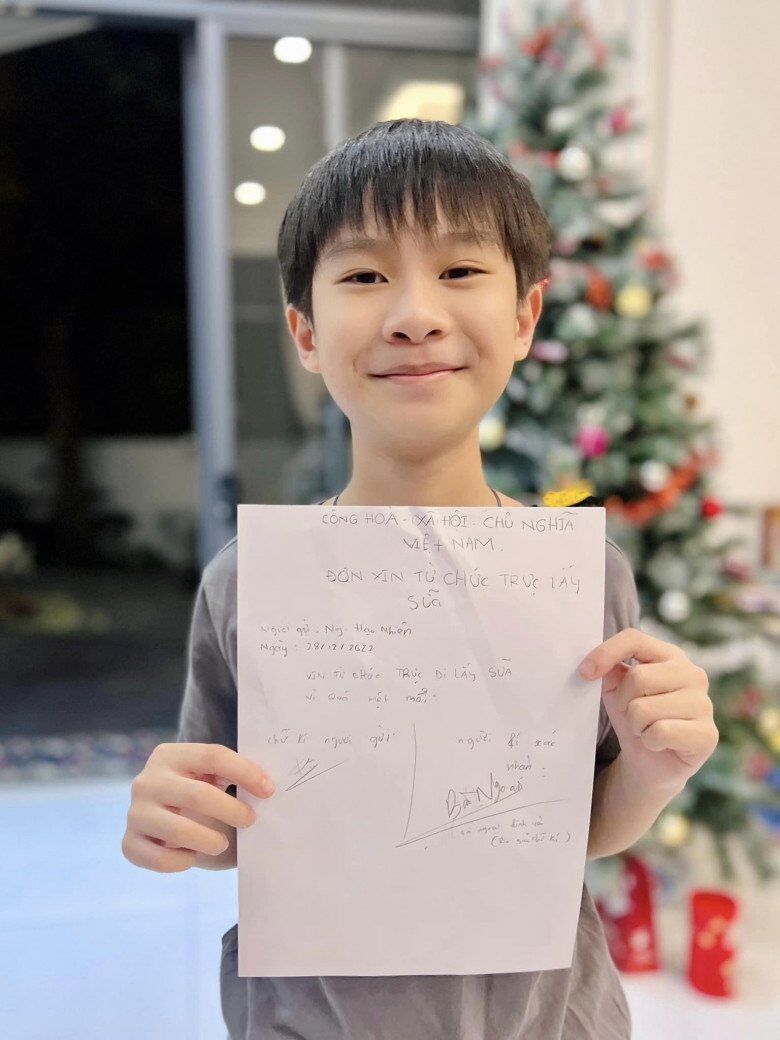 CỘNG HOÀ - XÃ HỘI - CHỦ NGHĨA
VIỆT NAM.
ĐƠN XIN TỪ CHỨC TRỰC LẤY
SỮA
Người gửi : Ng. Hạo Nhiên
Ngày : 28/12/2022
XIN TỪ CHỨC TRỰC ĐI LẤY SỮA
vì quá mệt mỏi.
chữ kí người gửi
người kí xác
nhận :
Bà Ngoại
người
chữ kí )